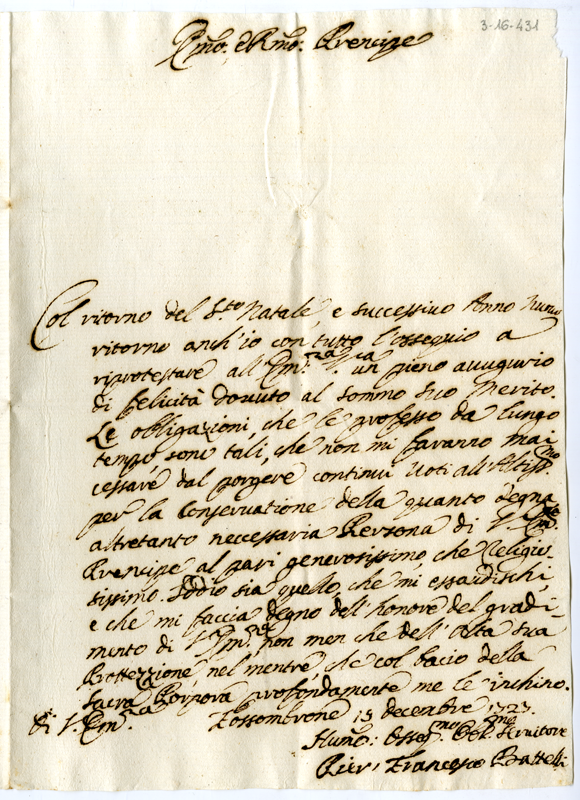 3-16-431
Em̃o. e Rm̃o. Prencipe
Col ritorno del S.to Natale, e successivo Anno nuovo
ritorno anch'io con tutto l'ossequio a
riprotestare all'Em.za S.ua un pieno auugurio
di felicità dovuto al sommo suo Merito.
Le obligazioni, che le professo da lungo
tempo, sono tali, che non mi faranno mai
cessare dal porgere continui Voti all'Altiss.mo
per la Conservatione della quanto degna
altretanto necessaria Persona di V. Em.
Prencipe al pari generosissimo, che Religio-
sissimo. Iddio sia quello, che mi essaudischi,
e che mi faccia degno dell'honore del gradi-
mento di V. Em.za, non men che dell'Alta sua
Prottezzione, nel mentre, che col bacio della
Sacra Porpora profondamente me le inchino.
di V. Em.za Fossombrone 15 decembre 1723.
Humo: Osseq.mo Obl.mo Servitore
Pier' Francesco Battelli